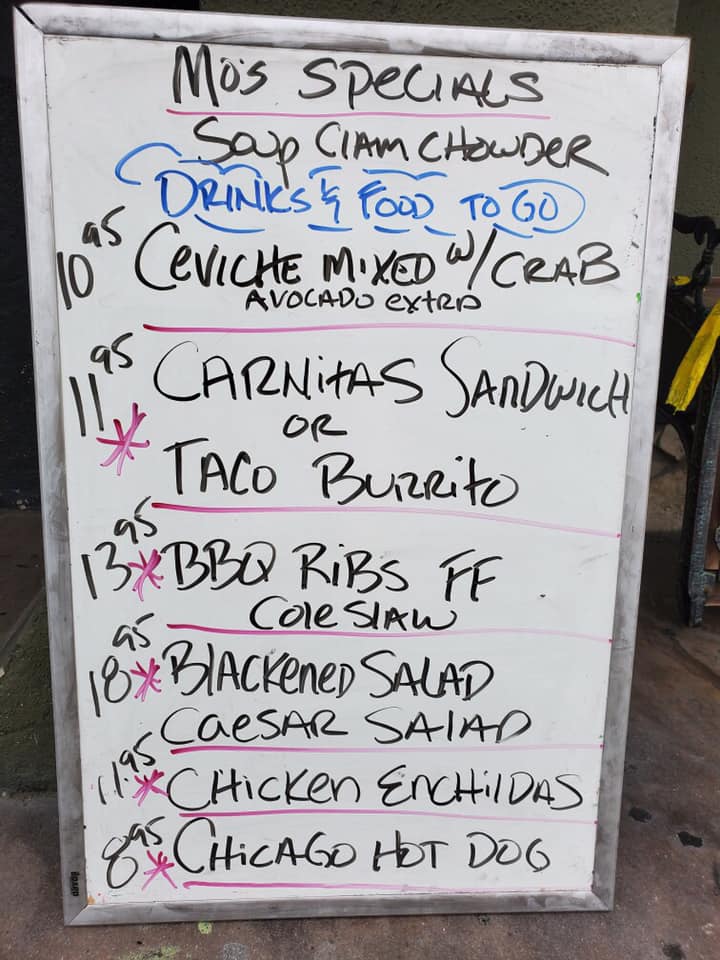 Mo's SPECIALS
Soup Clam CHOWDER
DRINKS & FOOD TO GO
10 95 CEVICHE MIXED W/ CRAB
AVOCADO extra
11 95 CARNitAS SANDWICH
OR
TACO BURRito
13 95 BBQ RiBS FF
Cole Slaw
18 95 BlACKeneD SALAD
CaeSAR SAlAD
11.95 CHicKen EncHilDAS
8 95 CHiCAGO HOT DOG